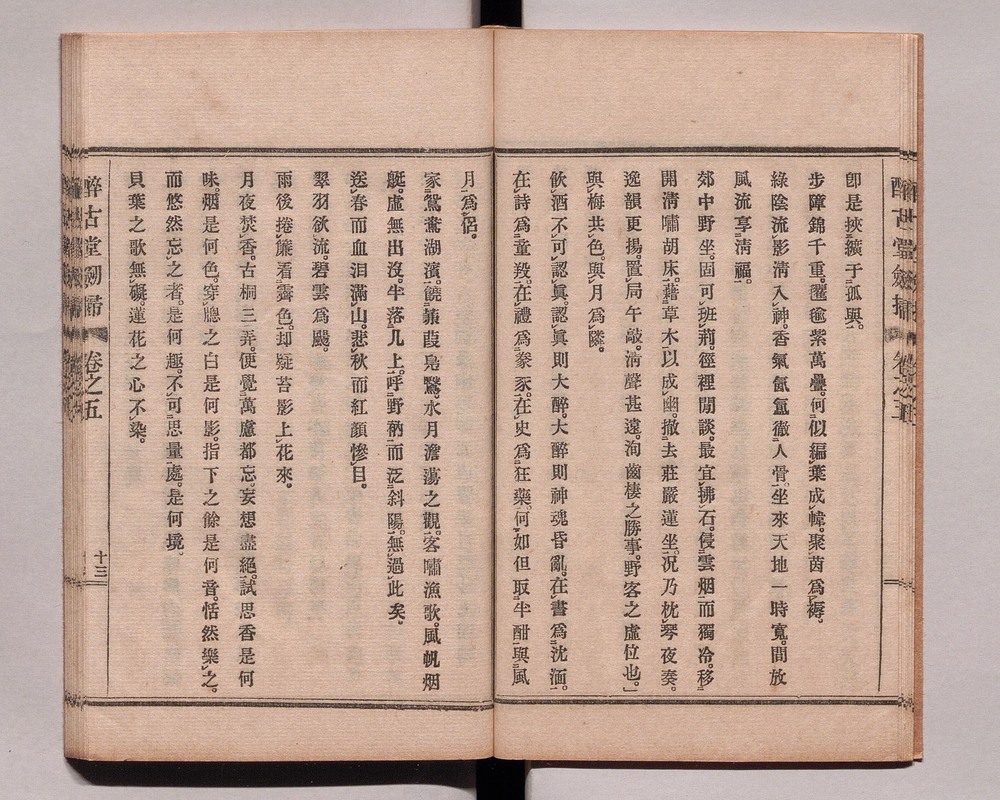 卽是挾纊于孤與。
步障錦千重。氍毹紫萬疊。何似編葉成幃。聚茵爲褥。
綠陰流影淸入神。香氣氤氳徹人骨。坐來天地一時寬。間放
風流享淸福。
郊中野坐。固可班荊。徑裡閒談。最宜拂石。侵雲烟而獨冷。移
開淸嘯胡床。藉草木以成幽。撤去莊嚴蓮坐。況乃枕琴夜奏。
逸韻更揚。置局午敲。淸聲甚遠。洵幽棲之勝事。野客之虛位也。
與梅共色。與月爲隣。
飲酒不可認眞。認眞則大醉。大醉則神魂昏亂。在書爲沈湎。
在詩爲童羖。在禮爲豢豕。在史爲狂藥。何如但取半酣。與風
月爲侶。
家鴛鴦湖濱。饒蒹葭鳧鷖。水月澹蕩之觀。客嘯漁歌。風帆烟
艇。虛無出沒。半落几上。呼野衲而泛斜陽。無過此矣。
送春而血泪滿山。悲秋而紅顏慘目。
翠羽欲流。碧雲爲颺。
雨後捲簾看霽色。却疑苔影上花來。
月夜焚香。古桐三弄。便覺萬慮都忘。妄想盡絕。試思香是何
味。烟是何色。穿牕之白是何影。指下之餘是何音。恬然樂之。
而悠然忘之者。是何趣。不可思量處。是何境。
貝葉之歌無礙。蓮花之心不染。
醉古堂劒掃
卷之五
十三